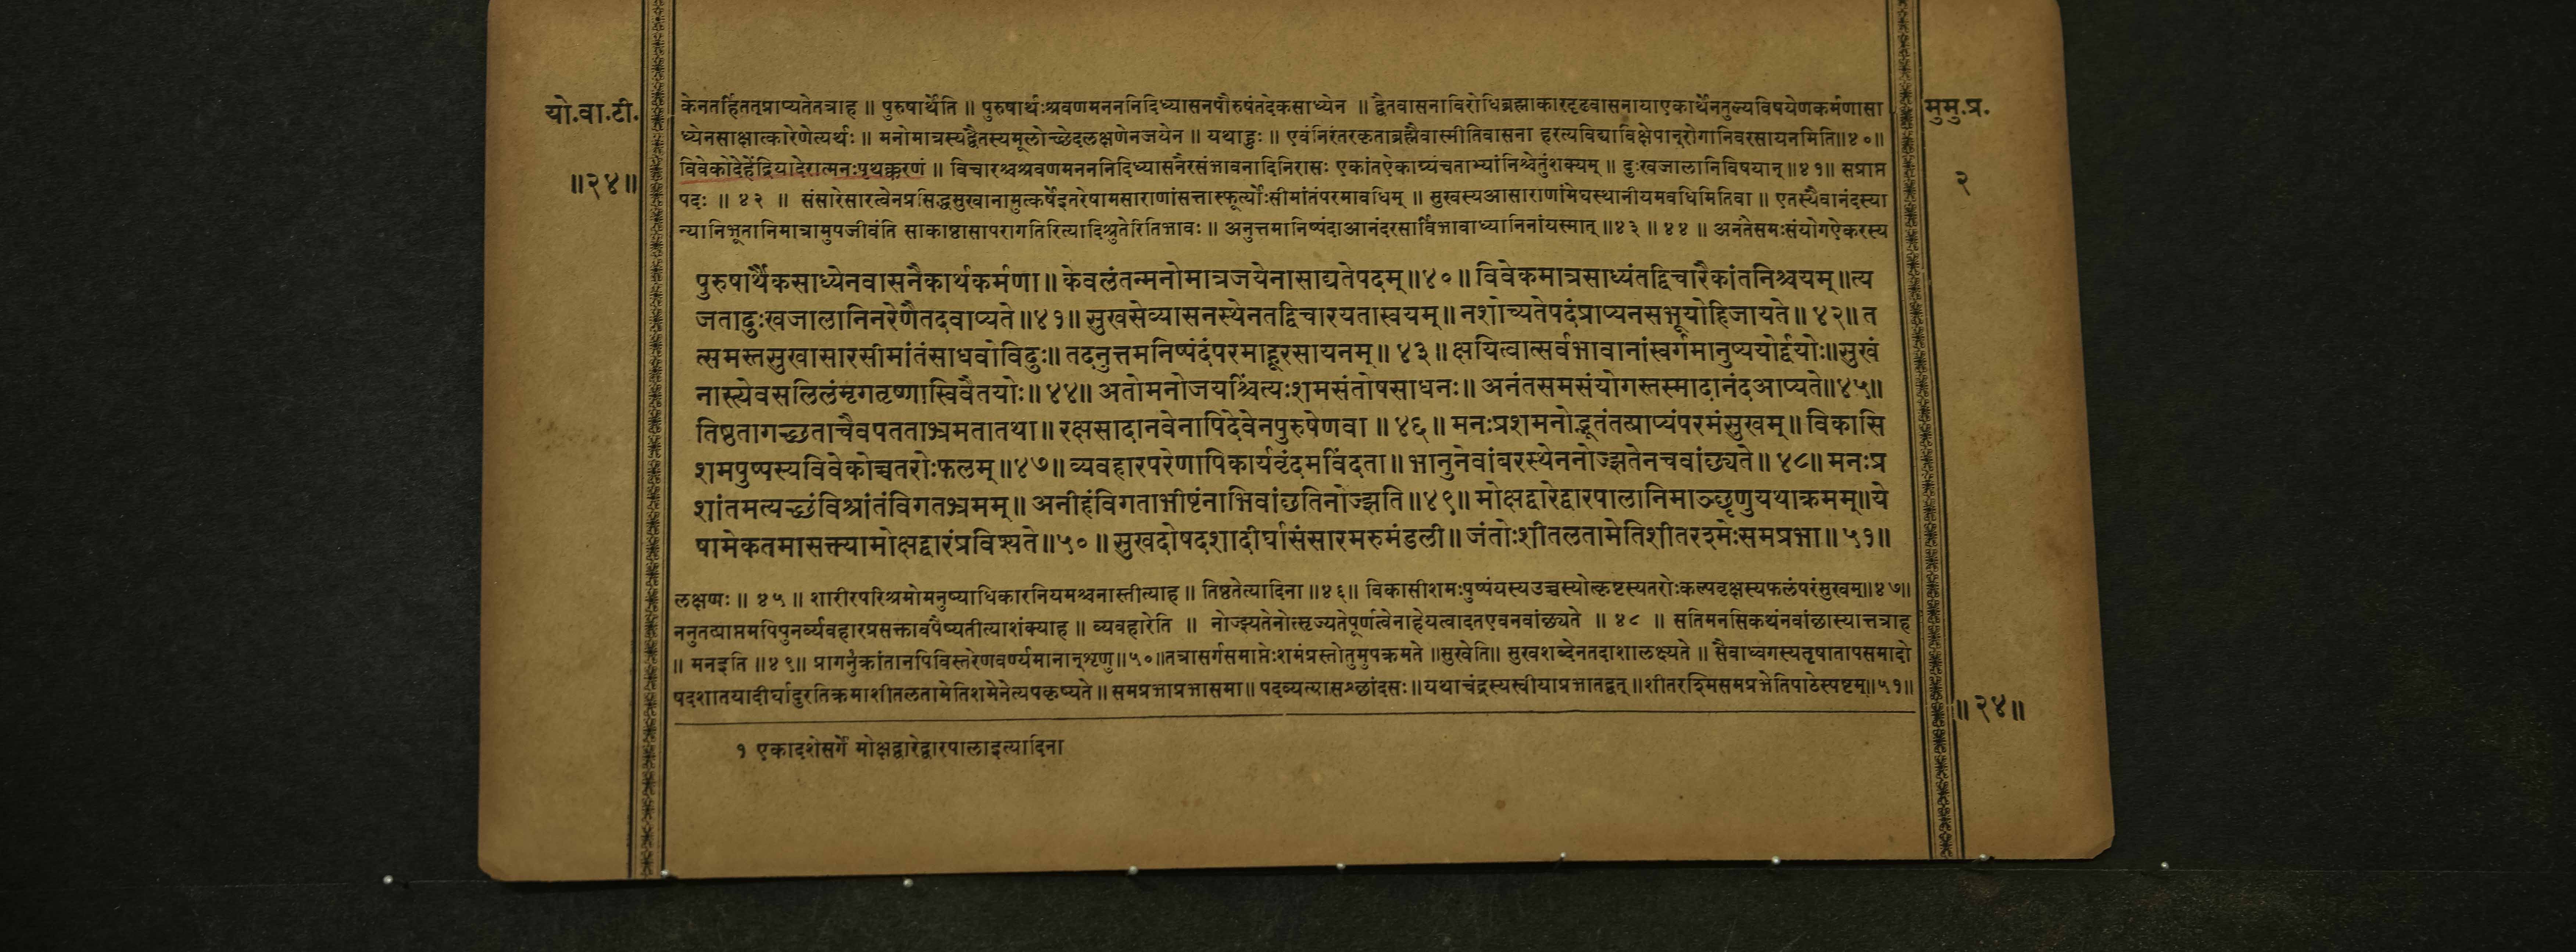 यो.वा.टी.
॥२४॥
मुमु.प्र.
२
केनतर्हितत्प्राप्यतेतत्राह ॥ पुरुषार्थेति ॥ पुरुषार्थःश्रवणमनननिदिध्यासनपौरुषंतदेकसाध्येन ॥ द्वैतवासनाविरोधिब्रह्माकारदृढवासनायाएकार्थेनतुल्यविषयेणकर्मणासा
ध्येनसाक्षात्कारेणेत्यर्थः ॥ मनोमात्रस्यद्वैतस्यमूलोच्छेदलक्षणेनजयेन ॥ यथाहुः ॥ एवंनिरंतरकृताब्रह्मैवास्मीतिवासना हरत्यविद्याविक्षेपान्रोगानिवरसायनमिति॥४०॥
विवेकोदेहेंद्रियादेरात्मनःपृथक्करणं ॥ विचारश्चश्रवणमनननिदिध्यासनैरसंभावनादिनिरासः एकांतऐकाग्र्यंचताभ्यांनिश्चेतुंशक्यम् ॥ दुःखजालानिविषयान् ॥४१॥ सप्राप्त
पदः ॥ ४२ ॥ संसारेसारत्वेनप्रसिद्धसुखानामुत्कर्षेइतरेषामसाराणांसत्तास्फूर्त्योःसीमांतंपरमावधिम् ॥ सुखस्यआसाराणांमेघस्थानीयमवधिमितिवा ॥ एतस्यैवानंदस्या
न्यानिभूतानिमात्रामुपजीवंति साकाष्ठासापरागतिरित्यादिश्रुतेरितिभावः ॥ अनुत्तमानिष्पंदाआनंदरसाविर्भावाध्यानिनांयस्मात् ॥४३ ॥ ४४ ॥ अनंतेसमःसंयोगऐकरस्य
पुरुषार्थैकसाध्येनवासनैकार्थकर्मणा॥ केवलंतन्मनोमात्रजयेनासाद्यतेपदम्॥४०॥ विवेकमात्रसाध्यंतद्विचारैकांतनिश्चयम्॥त्य
जतादुःखजालानिनरेणैतदवाप्यते॥४१॥ सुखसेव्यासनस्थेनतद्विचारयतास्वयम्॥ नशोच्यतेपदंप्राप्यनसभूयोहिजायते॥ ४२॥ त
त्समस्तसुखासारसीमांतंसाधवोविदुः॥ तदनुत्तमनिष्पंदंपरमाहूरसायनम्॥ ४३॥ क्षयित्वात्सर्वभावानांस्वर्गमानुष्ययोर्द्वयोः॥सुखं
नास्त्येवसलिलंमृगतृष्णास्विवैतयोः॥ ४४॥ अतोमनोजयश्चिंत्यःशमसंतोषसाधनः॥ अनंतसमसंयोगस्तस्मादानंदआप्यते॥४५॥
तिष्ठतागच्छताचैवपतताभ्रमतातथा॥ रक्षसादानवेनापिदेवेनपुरुषेणवा ॥ ४६॥ मनःप्रशमनोद्भूतंतत्प्राप्यंपरमंसुखम्॥ विकासि
शमपुष्पस्यविवेकोच्चतरोःफलम्॥४७॥ व्यवहारपरेणापिकार्यवृंदमविंदता॥ भानुनेवांबरस्थेननोज्झतेनचवांछ्यते॥ ४८॥ मनःप्र
शांतमत्यच्छंविश्रांतंविगतभ्रमम्॥ अनीहंविगताभीष्टंनाभिवांछतिनोज्झति॥४९॥ मोक्षद्वारेद्वारपालानिमाञ्छृणुयथाक्रमम्॥ये
षामेकतमासक्त्यामोक्षद्वारंप्रविश्यते॥५०॥ सुखदोषदशादीर्घासंसारमरुमंडली॥ जंतोःशीतलतामेतिशीतरश्मेःसमप्रभा॥ ५१॥
लक्षणः ॥ ४५ ॥ शारीरपरिश्रमोमनुष्याधिकारनियमश्चनास्तीत्याह ॥ तिष्ठतेत्यादिना ॥४६॥ विकासीशमःपुष्पंयस्यउच्चस्योत्कृष्टस्यतरोःकल्पवृक्षस्यफलंपरंसुखम्॥४७॥
ननुतत्प्राप्तमपिपुनर्व्यवहारप्रसक्तावपैष्यतीत्याशंक्याह ॥ व्यवहारेति ॥ नोज्झ्यतेनोत्सृज्यतेपूर्णत्वेनाहेयत्वादतएवनवांछ्यते ॥ ४८ ॥ सतिमनसिकथंनवांछास्यात्तत्राह
॥ मनइति ॥४९॥ प्रागनुक्रांतानपिविस्तरेणवर्ण्यमानान्शृणु॥५०॥तत्रासर्गसमाप्तेःशमंप्रस्तोतुमुपक्रमते ॥सुखेति॥ सुखशब्देनतदाशालक्ष्यते ॥ सैवाध्वगस्यतृषातापसमादो
षदशातयादीर्घादुरतिक्रमाशीतलतामेतिशमेनेत्यपकृष्यते ॥ समप्रभाप्रभासमा॥ पदव्यत्यासश्छांदसः॥यथाचंद्रस्यस्वीयाप्रभातद्वत् ॥शीतरश्मिसमप्रभेतिपाठेस्पष्टम्॥५१॥
॥२४॥
१ एकादशेसर्गे मोक्षद्वारेद्वारपालाइत्यादिना